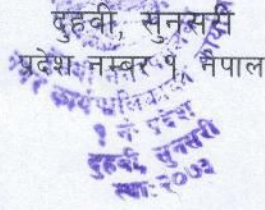 दुहवी, सुनसरी
प्रदेश नम्बर १, नेपाल
१ नं. प्रदेश
दुहवी, सुनसरी
स्था: २०७३